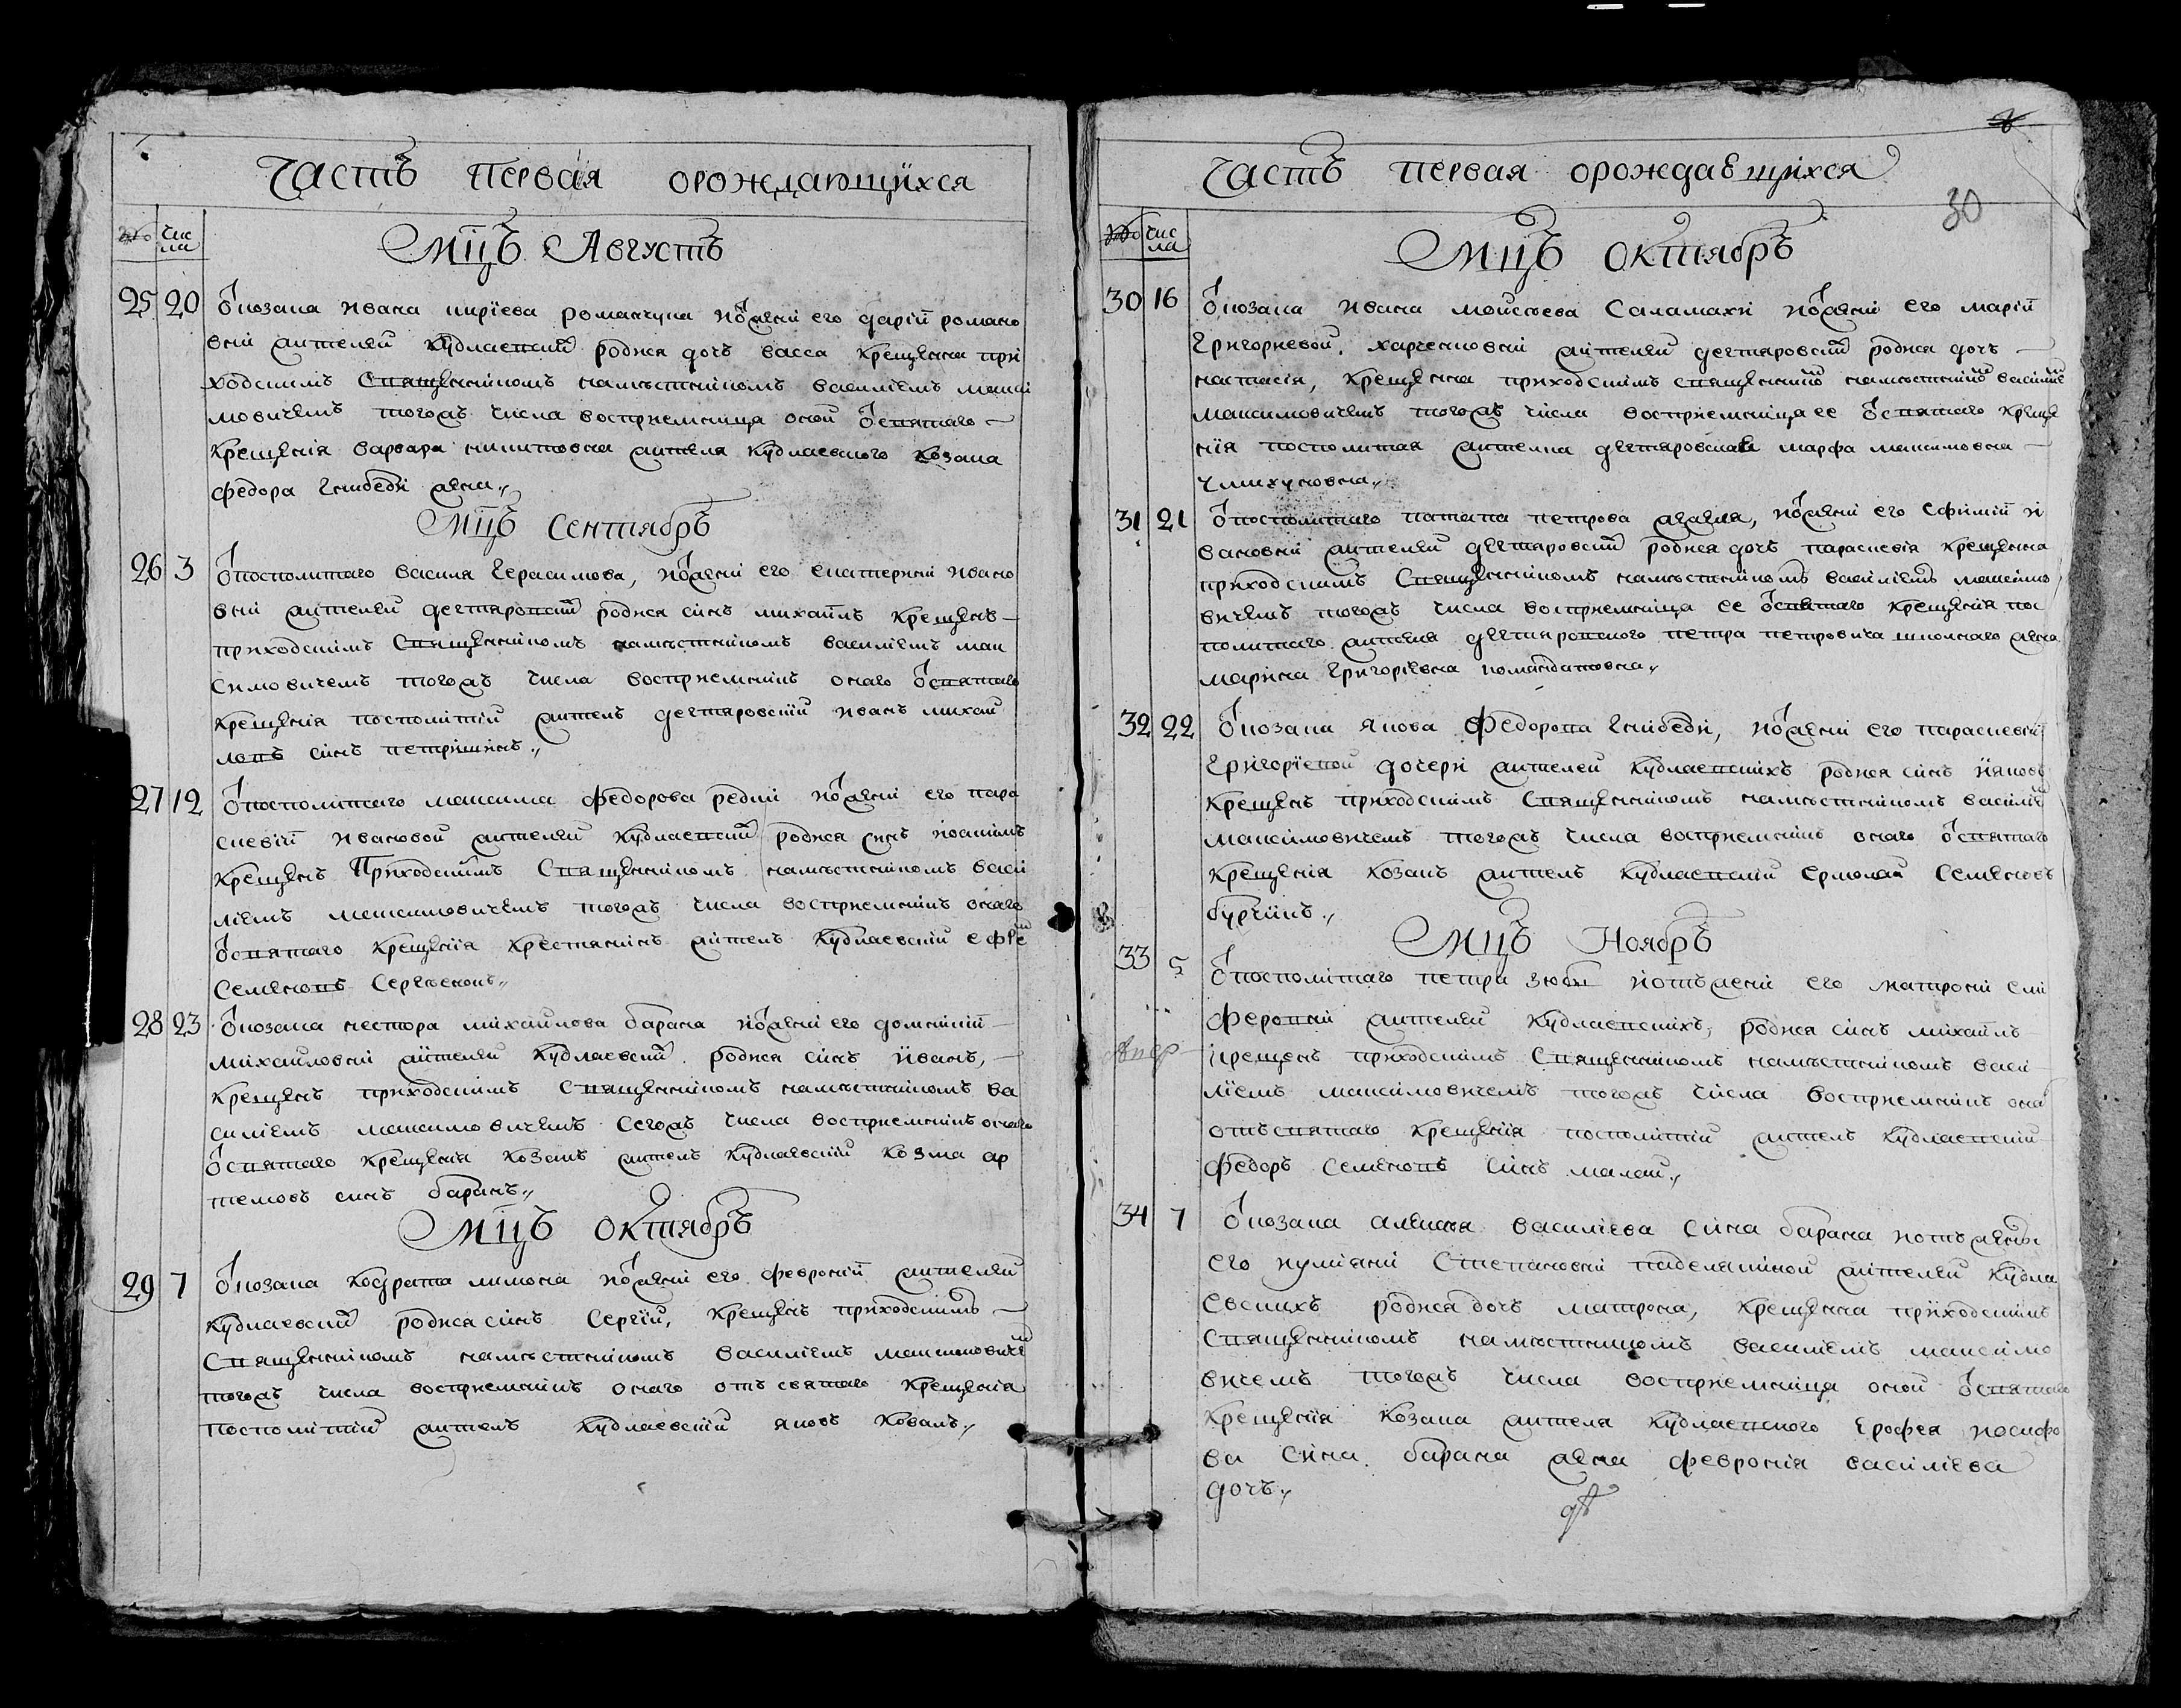 Часть первая орождающихся
чис
ла
Мцъ Августъ
25 20 Ѿ козака Ивана кирїева романчука иѾ жени его дарїй романо
вни жителей кудлаевских родися дочь васса крещенна при
ходскимъ Священникомъ намѣстникомъ василиемъ макси
мовичемъ тогожъ числа восприемница оной Ѿ святаго
крещенія варвара никитовна жителя кудлаевского козака
федора гнибеди жена
Мцъ Сентябръ
26 3 Ѿ посполитаго василя Герасимова, иѾ жени его екатерини ивано
вни жителей дегтяровских родися синъ михаилъ крещенъ
приходскимъ Священникомъ намѣстникомъ василиемъ мак
симовичемъ тогожъ числа восприемникъ онаго Ѿ святаго
крещенія посполитий житель дегтяровский иванъ михай
ловъ синъ петришинъ
27 12 Ѿ посполитаго максима федорова редки иѾ жени его пара
скевїй ивановой жителей кудлаевских родися синъ иоакимъ
крещенъ Приходскимъ Священникомъ намѣстникомъ васи
лїемъ максимовичемъ тогожъ числа восприемникъ онаго
Ѿ святаго крещенїя крестянинъ житель кудлаевский ефрем
Семеновъ
28 23 Ѿ козака нестора михайлова барана иѾ жени его домникий
михайловни жителей кудлаевских родися синъ иванъ,
крещенъ приходскимъ Священникомъ намѣстникомъ ва
силїемъ максимовичемъ сегожъ числа восприемникъ онаго
Ѿ святаго крещенія козакъ житель кудлаевский козма ар
темовъ синъ баранъ
Мцъ октябръ
29 7 Ѿ козака кодрата лимона иѾ жени его февронїй жителей
кудлаевских родися синъ Сергїй, крещенъ приходскимъ
Священникомъ намѣстникомъ василиемъ максимовичем
тогожъ числа восприемникъ онаго отъ святаго крещенїя
посполитий житель кудлаевский яковъ коваль
Часть первая орождавщихся
30
чис
ла
Мцъ октябръ
30 16 Ѿ козака ивана мойсѣева Саламахи иѾ жени его марїй
григориевой, харченковни жителей дегтяровских родися дочь
настасія, крещенна приходскимъ священником намѣстником василием
максимовичемъ тогожъ числа восприемница ее Ѿ святаго креще
нїя посполитая жителка дегтяровская марфа максимовна
31 21 Ѿ посполитаго патапа петрова, иѾ жени его Ефимїй и
вановни жителей дегтяровских родися дочь параскевія крещенна
приходскимъ Священникомъ намѣстникомъ василиемъ максимо
вичемъ тогожъ числа восприемница ее Ѿ святаго крещенія пос
политаго жителя дегтяровского петра петровича школнаго жена
марина григорїевна
32 22 Ѿ козака якова федорова гнибеди, иѾ жени его параскевїй
григорїевой дочери жителей кудлаевскихъ родися синъ
крещенъ приходскимъ Священникомъ намѣстникомъ василием
максимовичемъ тогожъ числа восприемникъ онаго Ѿ святаго
крещенїя козакъ житель кудлаевский ермолай Семеновъ
Мцъ Ноябръ
33 5 Ѿ посполитаго петра зюби иотъжени его матрони ели
феровни жителей кудлаевскихъ, родися синъ михаилъ
крещенъ приходскимъ Священникомъ намѣстникомъ васи
лїемъ максимовичемъ тогожъ числа восприемникъ она
отъ святаго крещенїя посполитий житель кудлаевский
федоръ Семеновъ синъ малай
34 7 Ѿ козака алексѣя василїева сина барана иотъ жени
его Степановни жителей кудла
евскихъ родися дочь матрона, крещенна приходскимъ
Священникомъ намѣстникомъ василиемъ максимо
вичемъ тогожъ числа восприемница оной Ѿ святаго
крещенїя козака жителя кудлаевского ерофея иосифо
ва сина барана жена феврония василїева
дочь